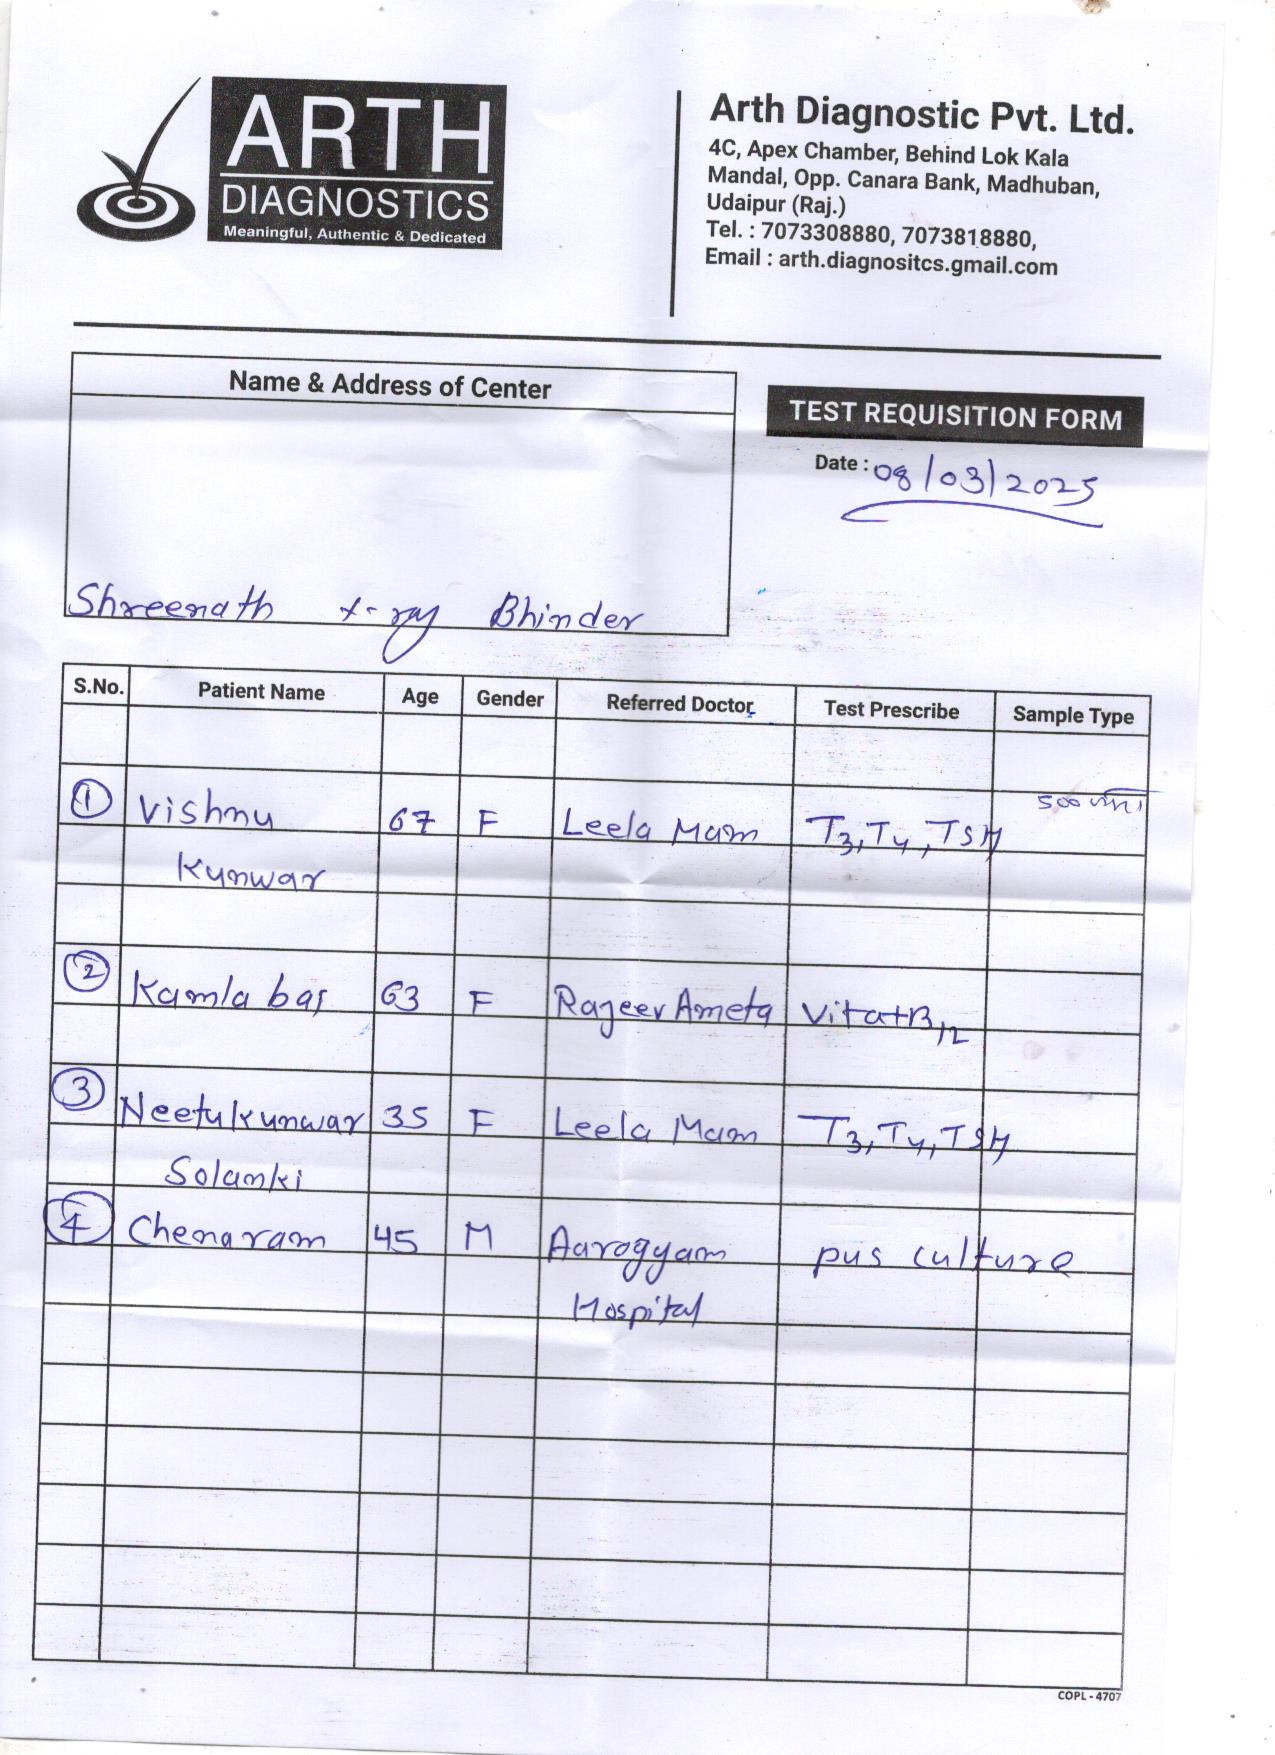 ARTH
DIAGNOSTICS
Meaningful, Authentic & Dedicated
Arth Diagnostic Pvt. Ltd.
4C, Apex Chamber, Behind Lok Kala
Mandal, Opp. Canara Bank, Madhuban,
Udaipur (Raj.)
Tel. : 7073308880, 7073818880,
Email : arth.diagnositcs.gmail.com
Name & Address of Center
Shreenath x-ray Bhinder
TEST REQUISITION FORM
Date : 08/03/2025
S.No. Patient Name Age Gender Referred Doctor Test Prescribe Sample Type
1 Vishnu 67 F Leela Mam T3, T4, TSH 500
Kunwar
2 Kamla bai 63 F Rajeev Ameta Vita+B12
3 Neetu kunwar 35 F Leela Mam T3, T4, TSH
Solanki
4 Chenaram 45 M Aarogyam pus culture
Hospital
COPL - 4707